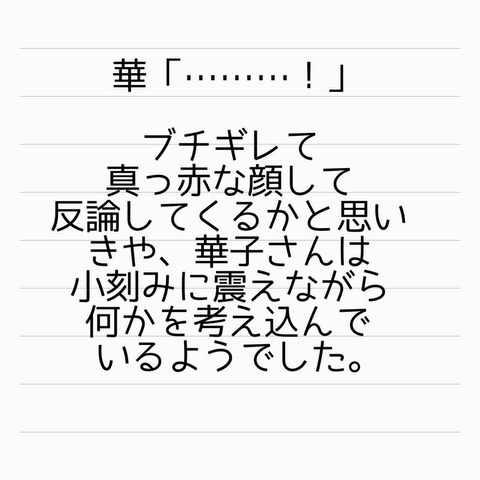 華「………！」
ブチギレて
真っ赤な顔して
反論してくるかと思い
きや、華子さんは
小刻みに震えながら
何かを考え込んで
いるようでした。